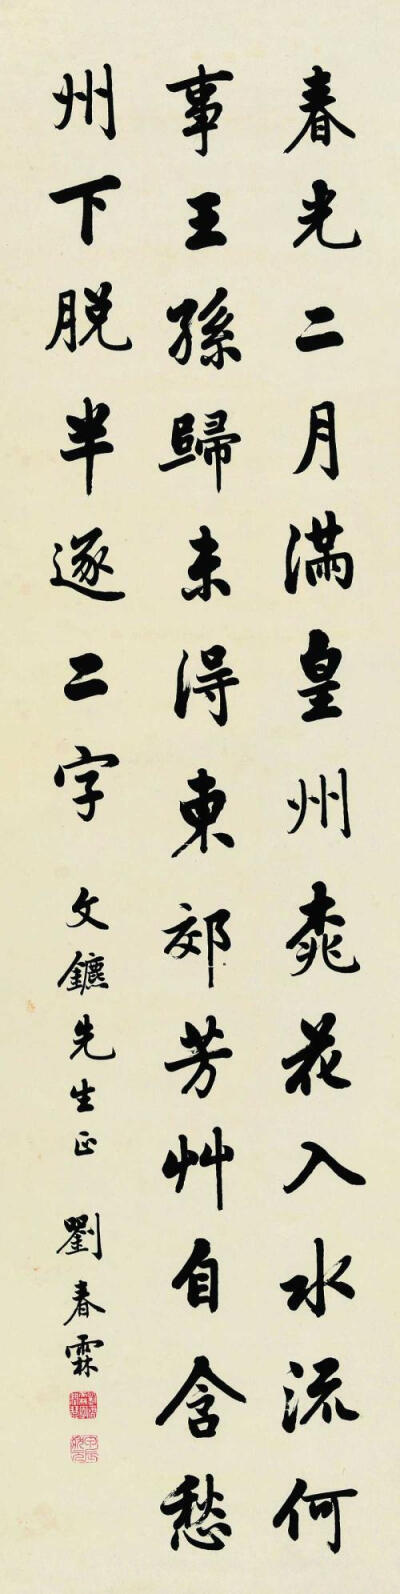 春光二月滿皇州桃花入水流何
事王孫歸未得東郊芳艸自含愁
州下脱半逐二字 文鑣先生正 劉春霖